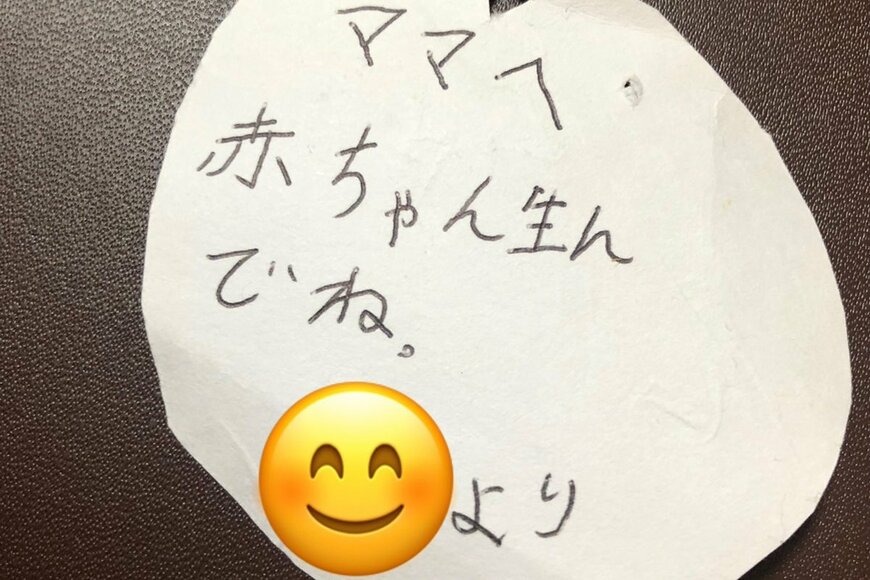 ママへ
赤ちゃん生ん
でね。
より